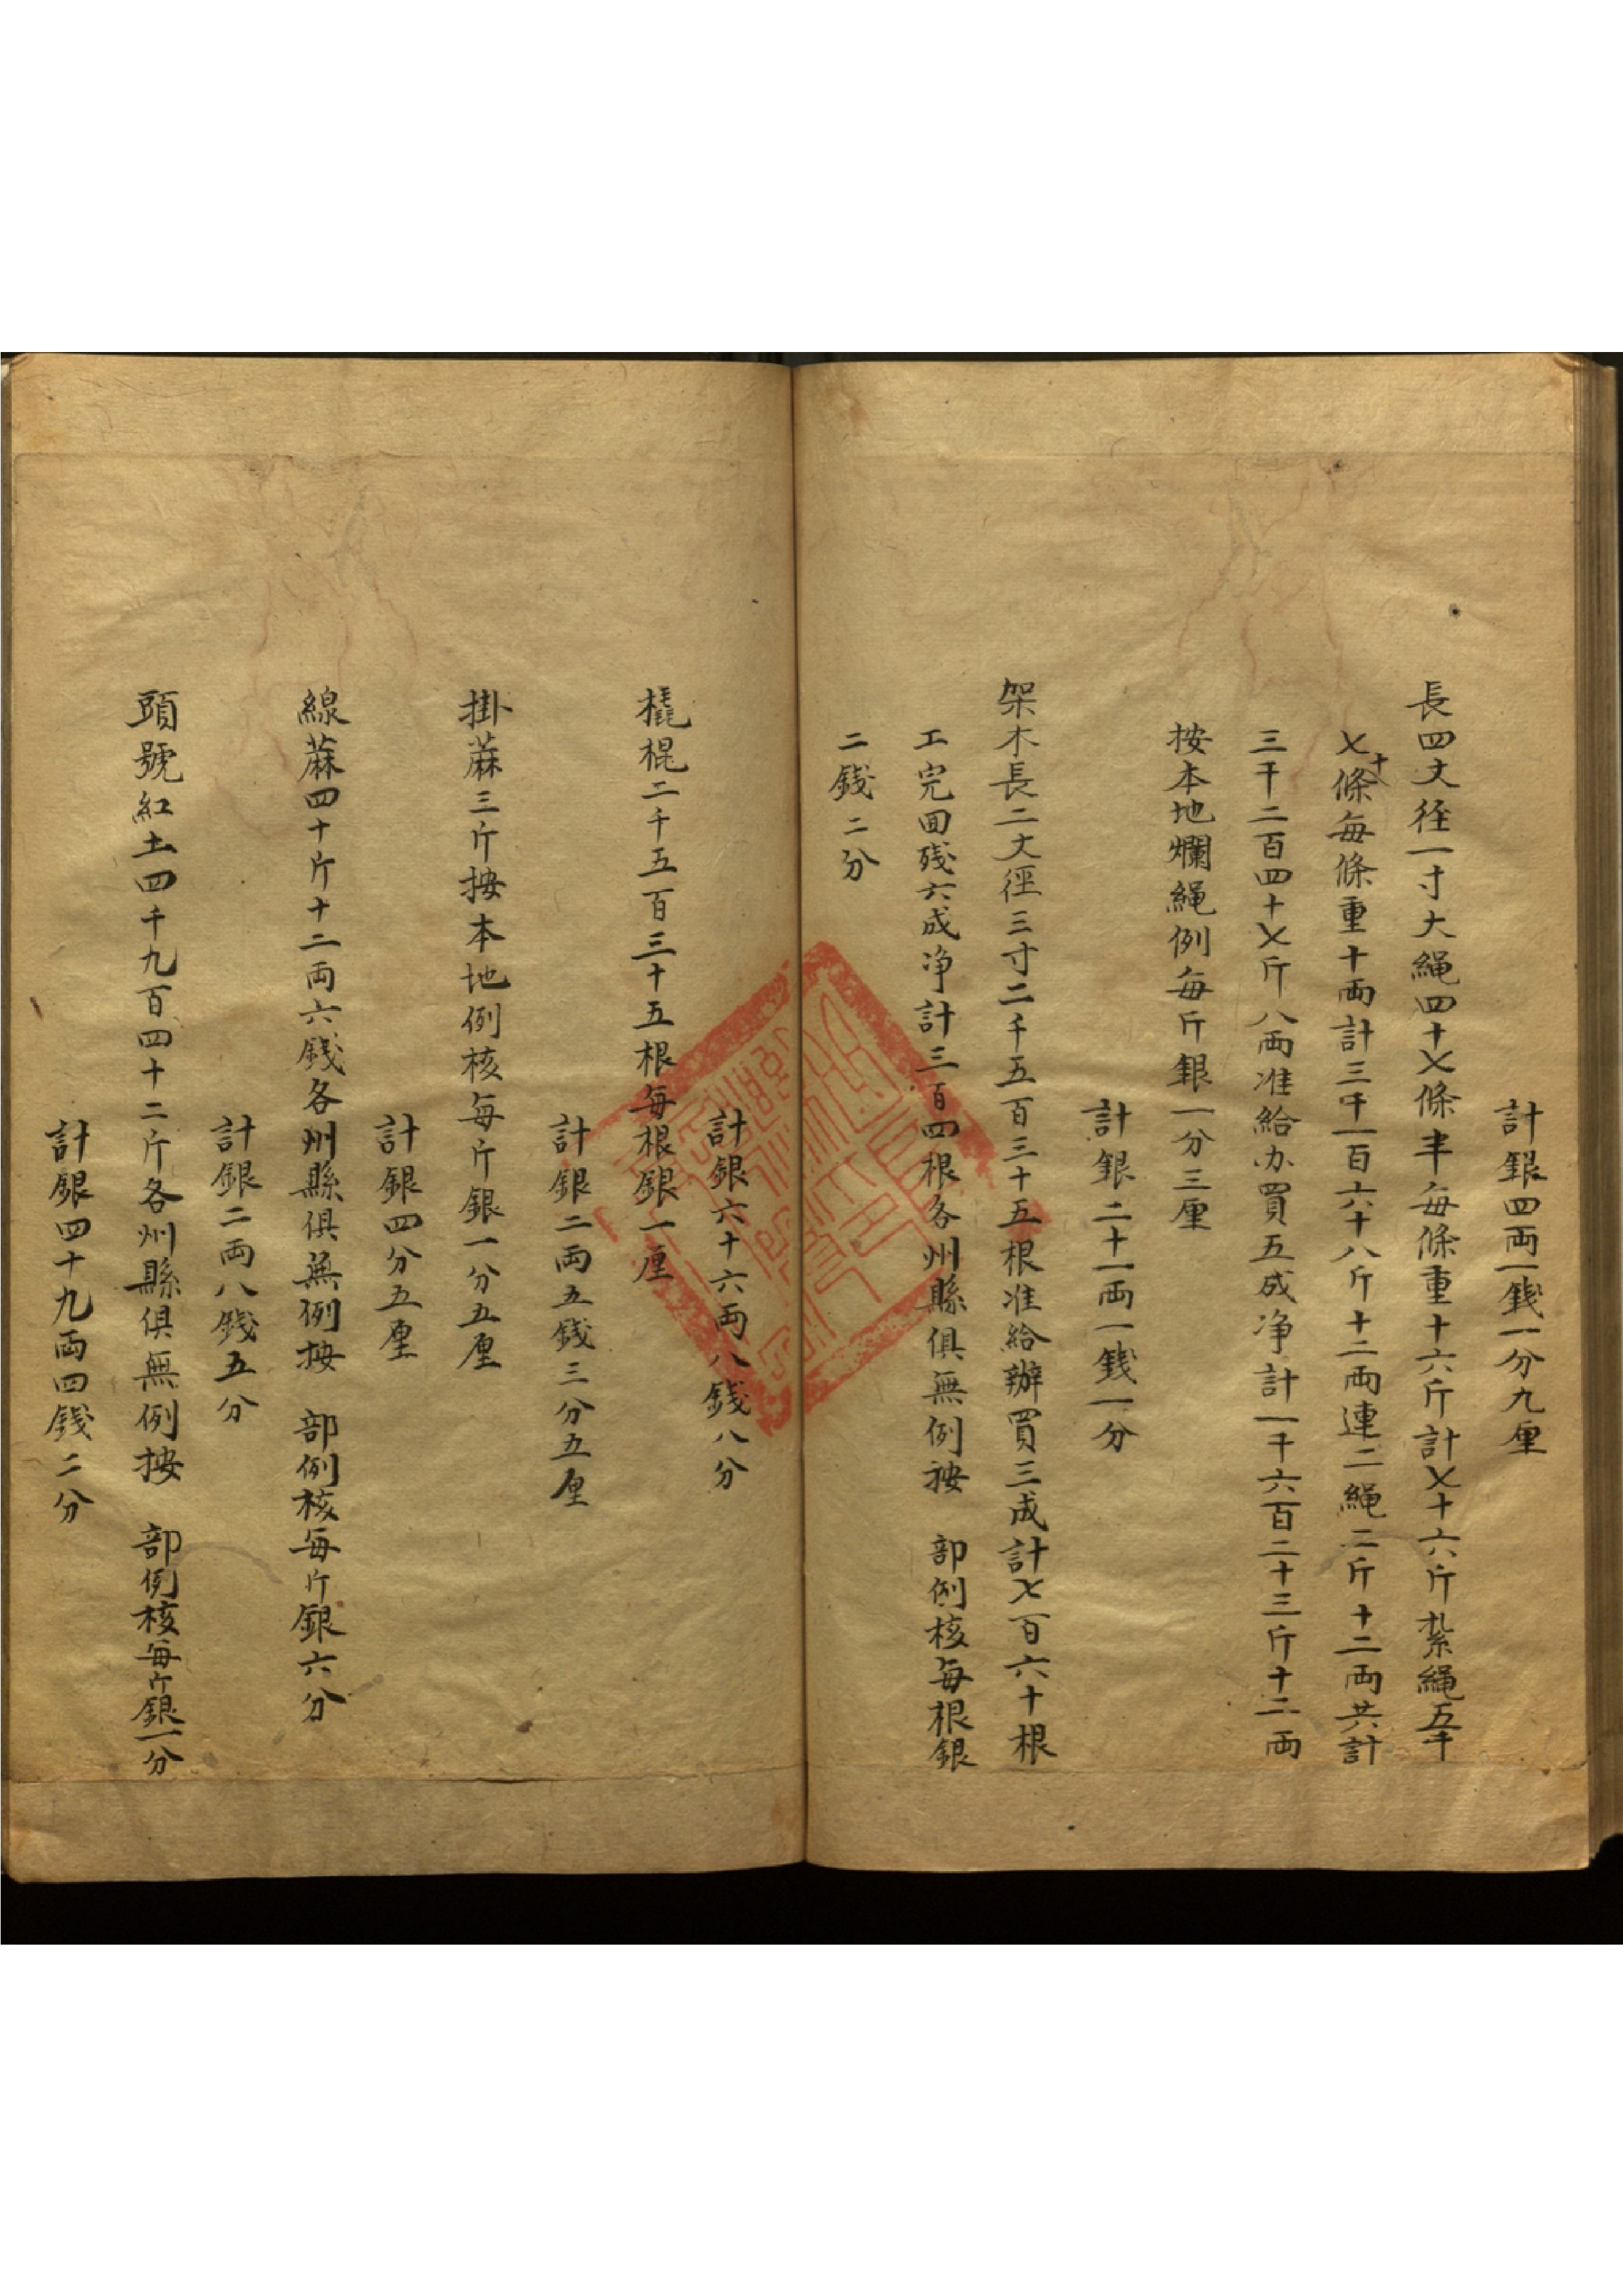 計銀四両一錢一分九厘
長四丈徑一寸大繩四十七條半每條重十六斤計七十六斤紮繩五千
七十條每條重十両計三千一百六十八斤十二両連二繩二斤十二両共計
三千二百四十七斤八両准給办買五成净計一千六百二十三斤十二両
按本地爛繩例每斤銀一分三厘
計銀二十一両一錢一分
架木長二丈徑三寸二千五百三十五根准給辦買三成計七百六十根
工完回残六成净計三百四根各州縣俱無例按 部例核每根銀
二錢二分
計銀六十六両八錢八分
橇棍二千五百三十五根每根銀一厘
計銀二両五錢三分五厘
掛蔴三斤按本地例核每斤銀一分五厘
計銀四分五厘
線蔴四十斤十二両六錢各州縣俱無例按 部例核每斤銀六分
計銀二両八錢五分
頭號紅土四千九百四十二斤各州縣俱無例按 部例核每斤銀一分
計銀四十九両四錢二分